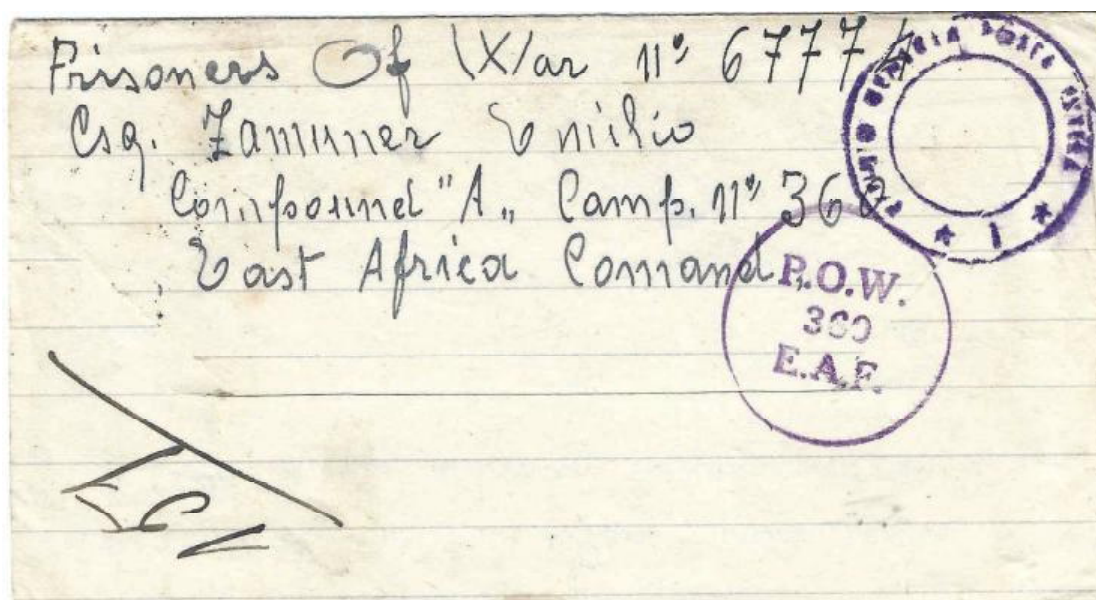 Prisoners Of War n° 6777
Csq. Zamuner Emilio
Compound "A„ Camp. n° 360
East Africa Comand.
P.O.W.
360
E.A.F.
POSTA
1